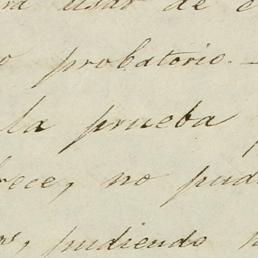 ra usar de e
o probatorio. —
la prueba
rece, no pud
pudiendo